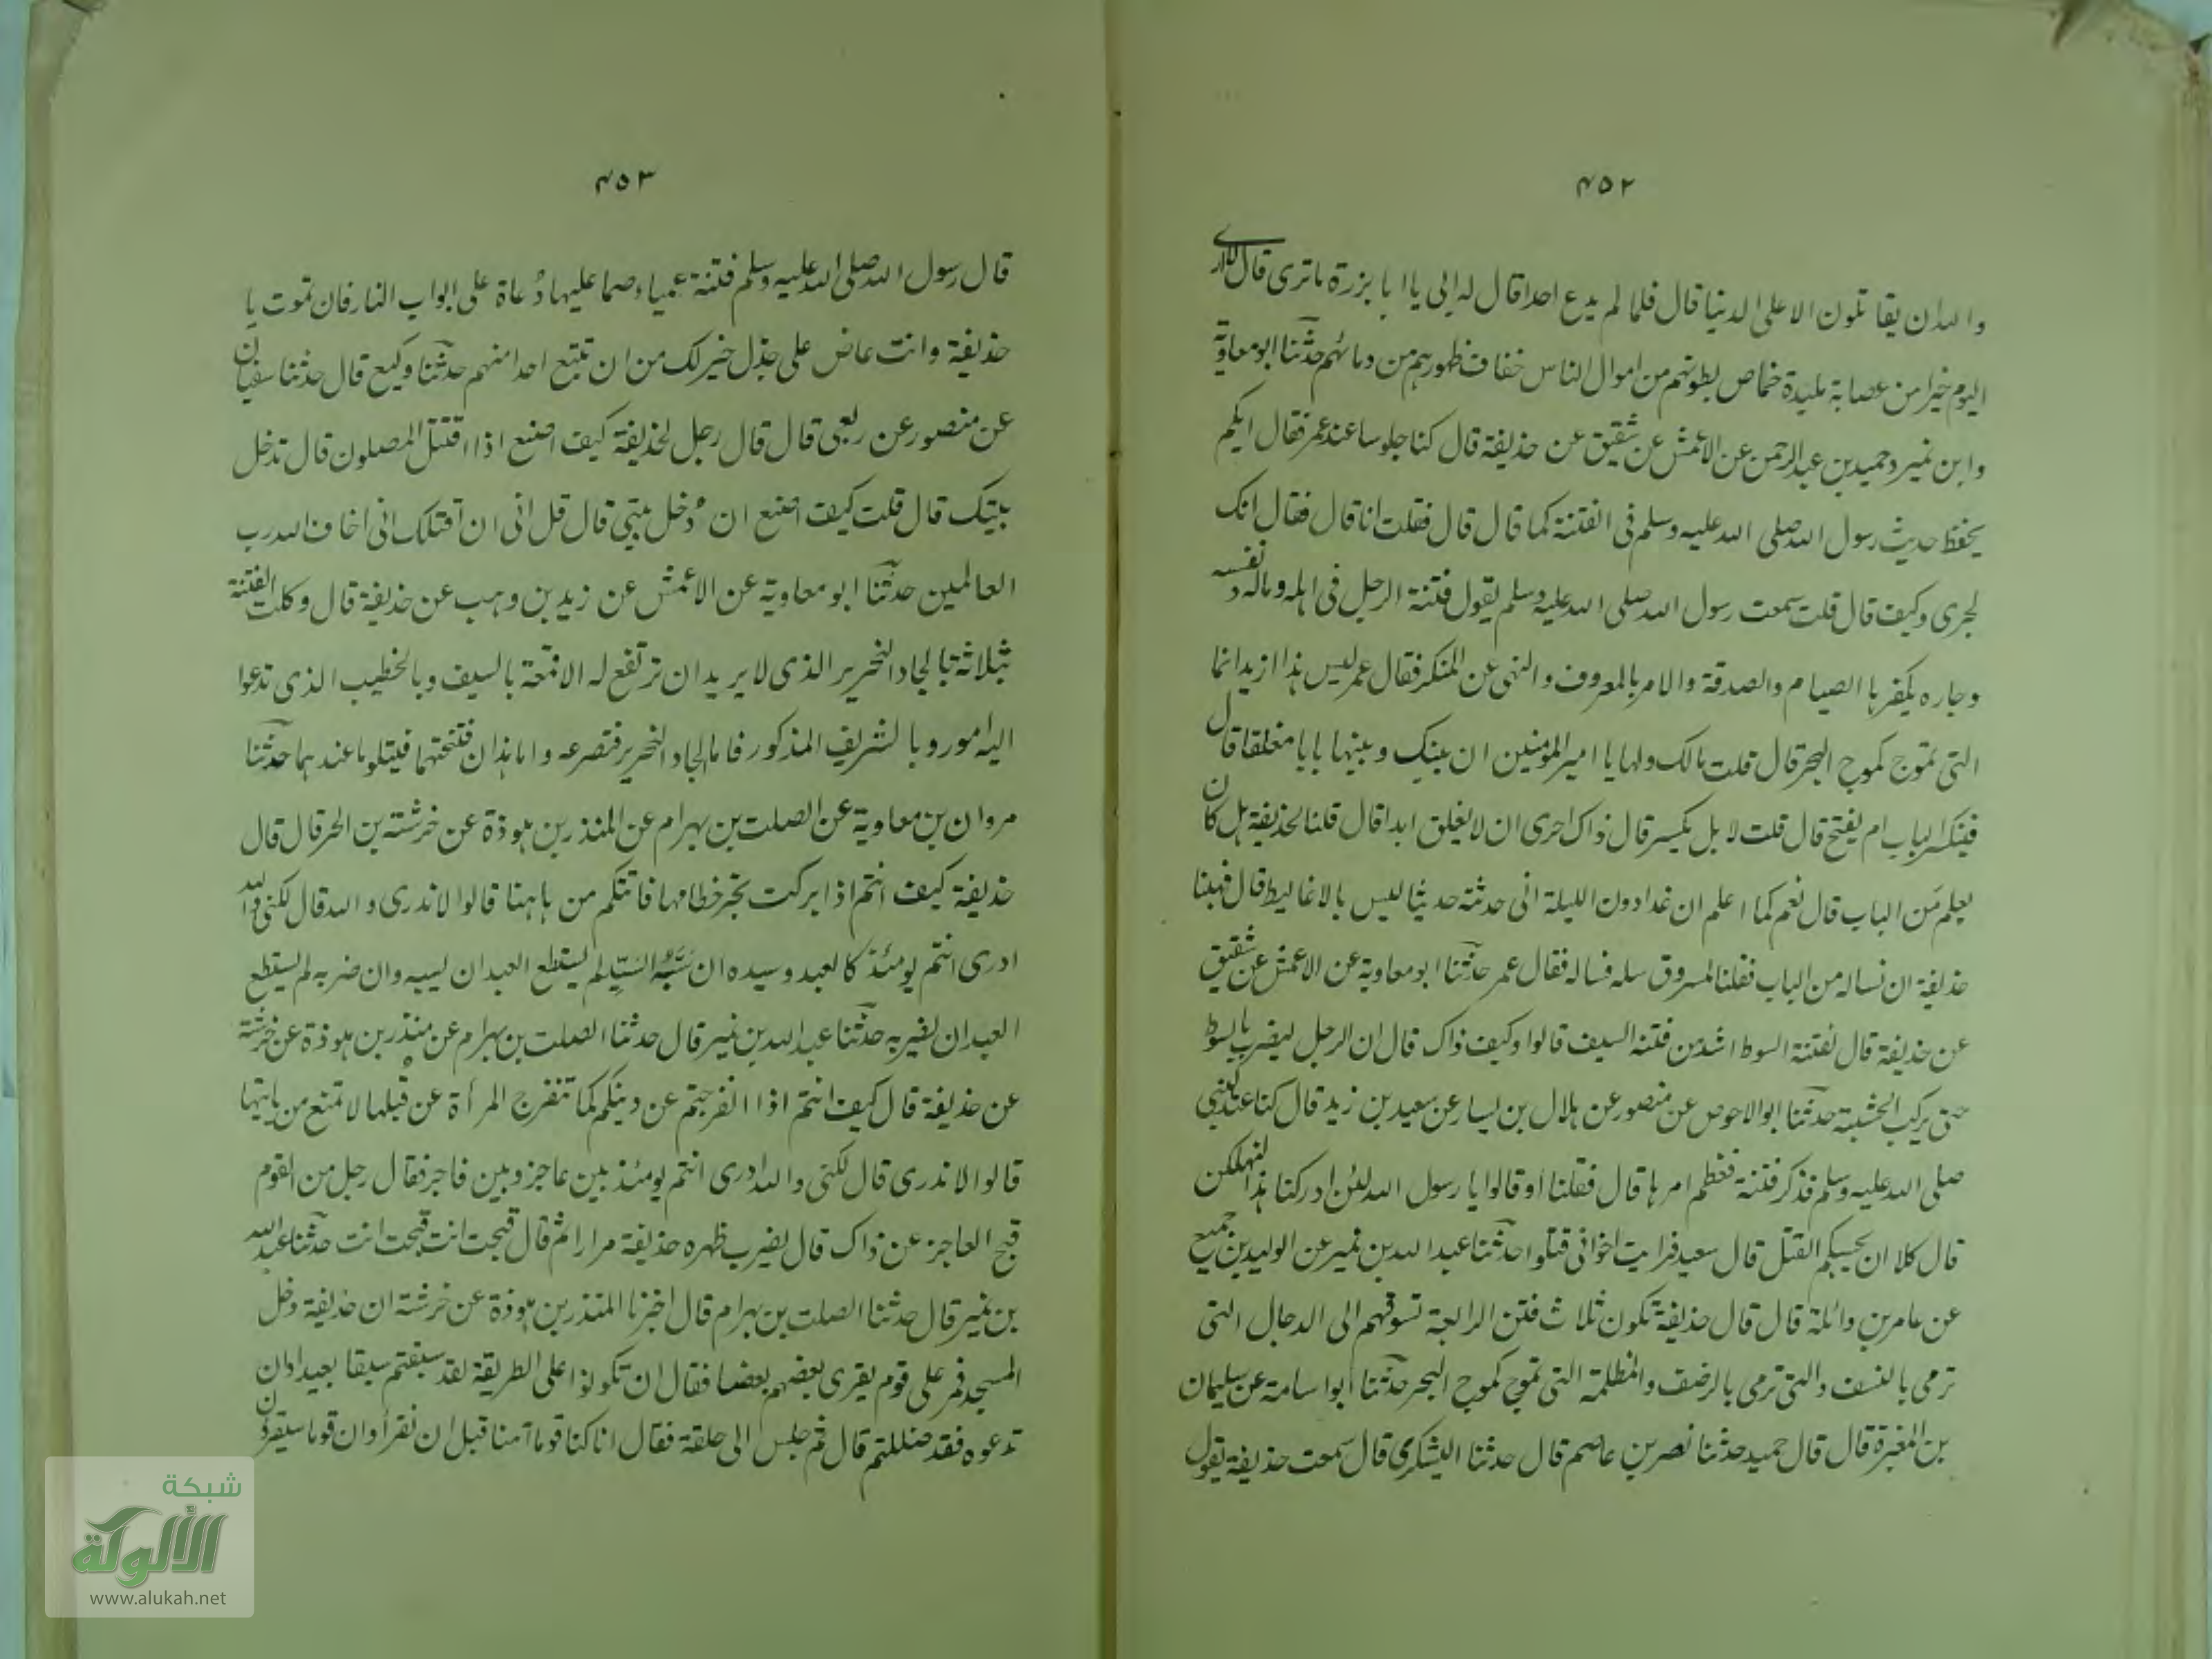 ٤٥٢
والله ان يقاتلون الا على الدنيا قال فلما لم يدع احدا قال له ابى يا ابا برزة ما ترى قال لا ارى
اليوم خيرا من عصابة ملبدة خماص بطونهم من اموال الناس خفاف ظهورهم من دمائهم حدثنا ابو معاوية
وابن نمير وحميد بن عبد الرحمن عن الاعمش عن شقيق عن حذيفة قال كنا جلوسا عند عمر فقال ايكم
يحفظ حديث رسول الله صلى الله عليه وسلم فى الفتنة كما قال قال فقلت انا قال فقال انك
لجرى وكيف قال قلت سمعت رسول الله صلى الله عليه وسلم يقول فتنة الرجل فى اهله وماله ونفسه
وجاره يكفرها الصيام والصدقة والامر بالمعروف والنهى عن المنكر فقال عمر ليس هذا ازيد انما
التى تموج كموج البحر قال قلت مالك ولها يا امير المومنين ان بينك وبينها بابا مغلقا قال
فينكسر الباب ام يفتح قال قلت لا بل يكسر قال ذاك احرى ان لا يغلق ابدا قال قلنا لحذيفة هل كان
يعلم من الباب قال نعم كما اعلم ان غدا دون الليلة انى حدثته حديثا ليس بالاغاليط قال فهبنا
حذيفة ان نساله من الباب فقلنا لمسروق سله فساله فقال عمر حدثنا ابو معاوية عن الاعمش عن شقيق
عن حذيفة قال لفتنة السوط اشد من فتنة السيف قالوا وكيف ذاك قال ان الرجل ليضرب بالسوط
حتى يركب الخشبة حدثنا ابو الاحوص عن منصور عن هلال بن يسار عن سعيد بن زيد قال كنا عند النبى
صلى الله عليه وسلم فذكر فتنة فعظم امرها قال فقلنا او قالوا يا رسول الله لئن ادركنا هذا لنهلكن
قال كلا ان بحسبكم القتل قال سعيد فرايت اخوانى قتلوا حدثنا عبد الله بن نمير عن الوليد بن جميع
عن عامر بن واثلة قال قال حذيفة تكون ثلاث فتن الرابعة تسوقهم الى الدجال التى
ترمى بالنشف والتى ترمى بالرضف والمظلمة التى تموج كموج البحر حدثنا ابو اسامة عن سليمان
بن المغيرة قال قال حميد حدثنا نصر بن عاصم قال حدثنا اليشكرى قال سمعت حذيفة يقول
٤٥٣
قال رسول الله صلى الله عليه وسلم فتنة عمياء صما عليها دُعاة على ابواب النار فان تموت يا
حذيفة وانت عاض على جذل خير لك من ان تتبع احدا منهم حدثنا وكيع قال حدثنا سفيان
عن منصور عن ربعى قال قال رجل لحذيفة كيف اصنع اذا اقتتل المصلون قال تدخل
بيتك قال قلت كيف اصنع ان دُخل بيتى قال قل انى ان اقتلك انى اخاف الله رب
العالمين حدثنا ابو معاوية عن الاعمش عن زيد بن وهب عن حذيفة قال وكلت الفتنة
بثلاثة بالجاد النحرير الذى لا يريد ان ترتفع له الا قمعة بالسيف وبالخطيب الذى تدعوا
اليه امور وبالشريف المذكور فاما الجاد النحرير فتصرعه واما هذان فتنحتهما فيتلو ما عندهما حدثنا
مروان بن معاوية عن الصلت بن بهرام عن المنذر بن هوذة عن خرشة بن الحر قال قال
حذيفة كيف انتم اذا بركت تجر خطامها فاتتكم من هاهنا قالوا لا ندرى والله قال لكنى والله
ادرى انتم يومئذ كالعبد وسيده ان سَبَّهُ السَيِّد لم يستطع العبد ان يسبه وان ضربه لم يستطع
العبد ان يضربه حدثنا عبد الله بن نمير قال حدثنا الصلت بن بهرام عن منذر بن هوذة عن خرشة
عن حذيفة قال كيف انتم اذا انفرجتم عن دينكم كما تنفرج المرأة عن قبلها لا تمنع من ياتيها
قالوا لا ندرى قال لكنى والله ادرى انتم يومئذ بين عاجز وبين فاجر فقال رجل من القوم
قبح العاجز عن ذاك قال يضرب ظهره حذيفة مرارا ثم قال قبحت انت قبحت انت حدثنا عبد الله
بن نمير قال حدثنا الصلت بن بهرام قال اخبرنا المنذر بن هوذة عن خرشة ان حذيفة دخل
المسجد فمر على قوم يقرى بعضهم بعضا فقال ان تكونوا على الطريقة لقد سبقتم سبقا بعيدا وان
تدعوه فقد ضللتم قال ثم جلس الى حلقة فقال انا كنا قوما آمنا قبل ان نقرأ وان قوما سيقرؤن
شبكة
الألوكة
www.alukah.net